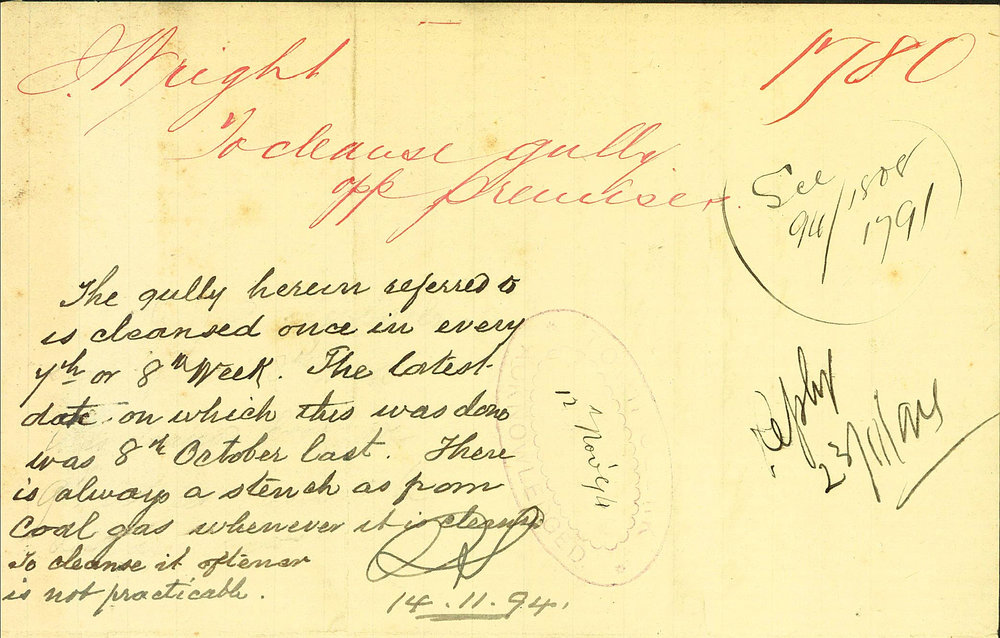 J. Wright
1780
To cleanse gully
opp premises.
See
94/1808
1791
The gully herein referred to
is cleansed once in every
7th or 8th Week. The latest
date on which this was done
was 8th October last. There
is always a stench as from
Coal gas whenever it is cleansed
To cleanse it oftener
is not practicable.
14.11.94.
12 Nov 94
ACKNOWLEDGED
Reply
23/11/94